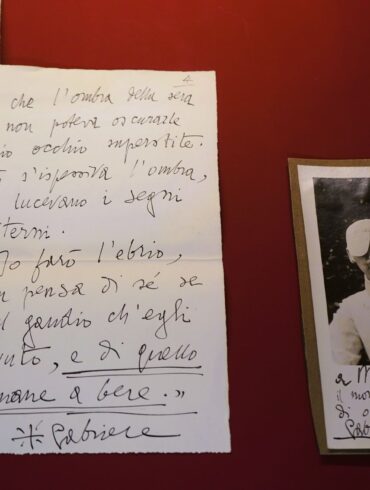 4
che l'ombra della sera
non poteva oscurarle
io occhio superstite.
s'ispessiva l'ombra,
lucevano i segni
terni.
Io farò l'ebrio,
n pensa di sé se
l gaudio ch'egli
vuto, e di quello
mane a bere.»
Gabriele
a M
il mor
di o
Gab